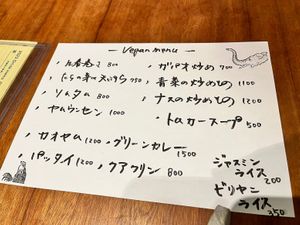 — Vegan menu —
・ 800
・にらの 天ぷら 750
・ソムタム 800
・ヤムウンセン 1000
・ガパオ炒め 700
・青菜の炒めもの 1100
・ナスの炒めもの 1200
・トムカースープ 500
・カオヤム 1200
・グリーンカレー 1500
・パッタイ 1200
・クアクリン 800
ジャスミン
ライス 200
ビリヤニ
ライス 350